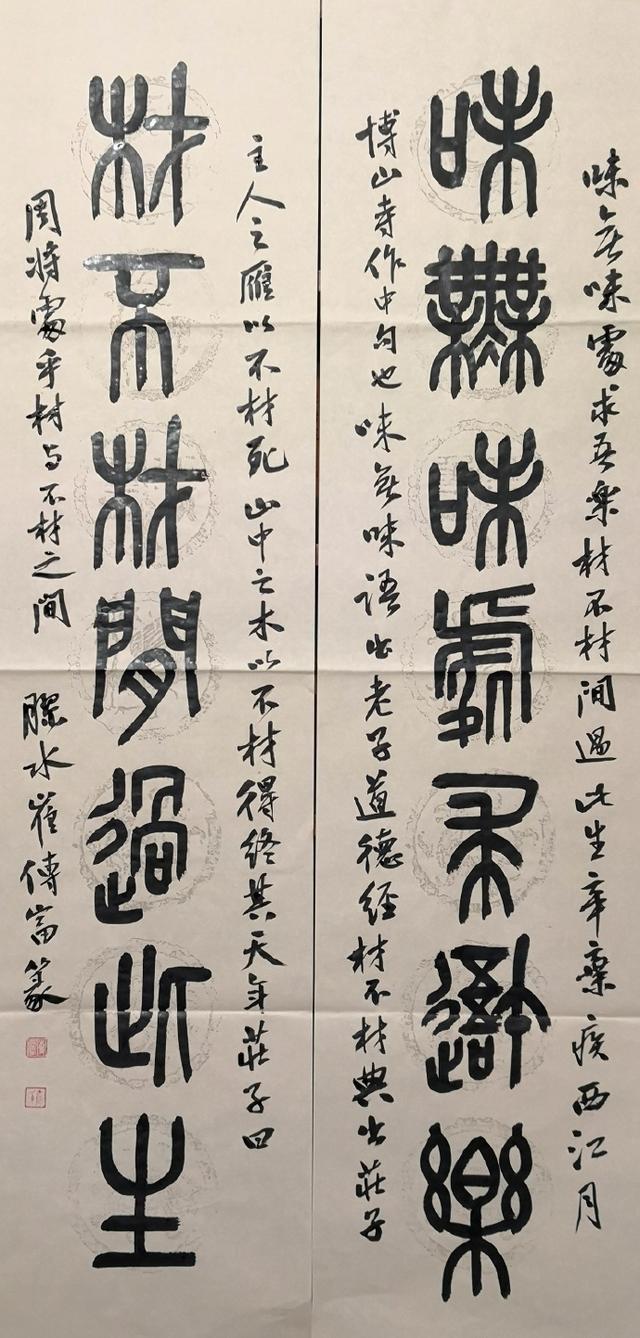 味無味處求吾樂材不材間過此生辛棄疾西江月
味無味處求吾樂
博山寺作中句也味無味語出老子道德經材不材典出莊子
主人之雁以不材死山中之木以不材得終其天年莊子曰
材不材間過此生
周將處乎材与不材之間 膠水崔傳富篆